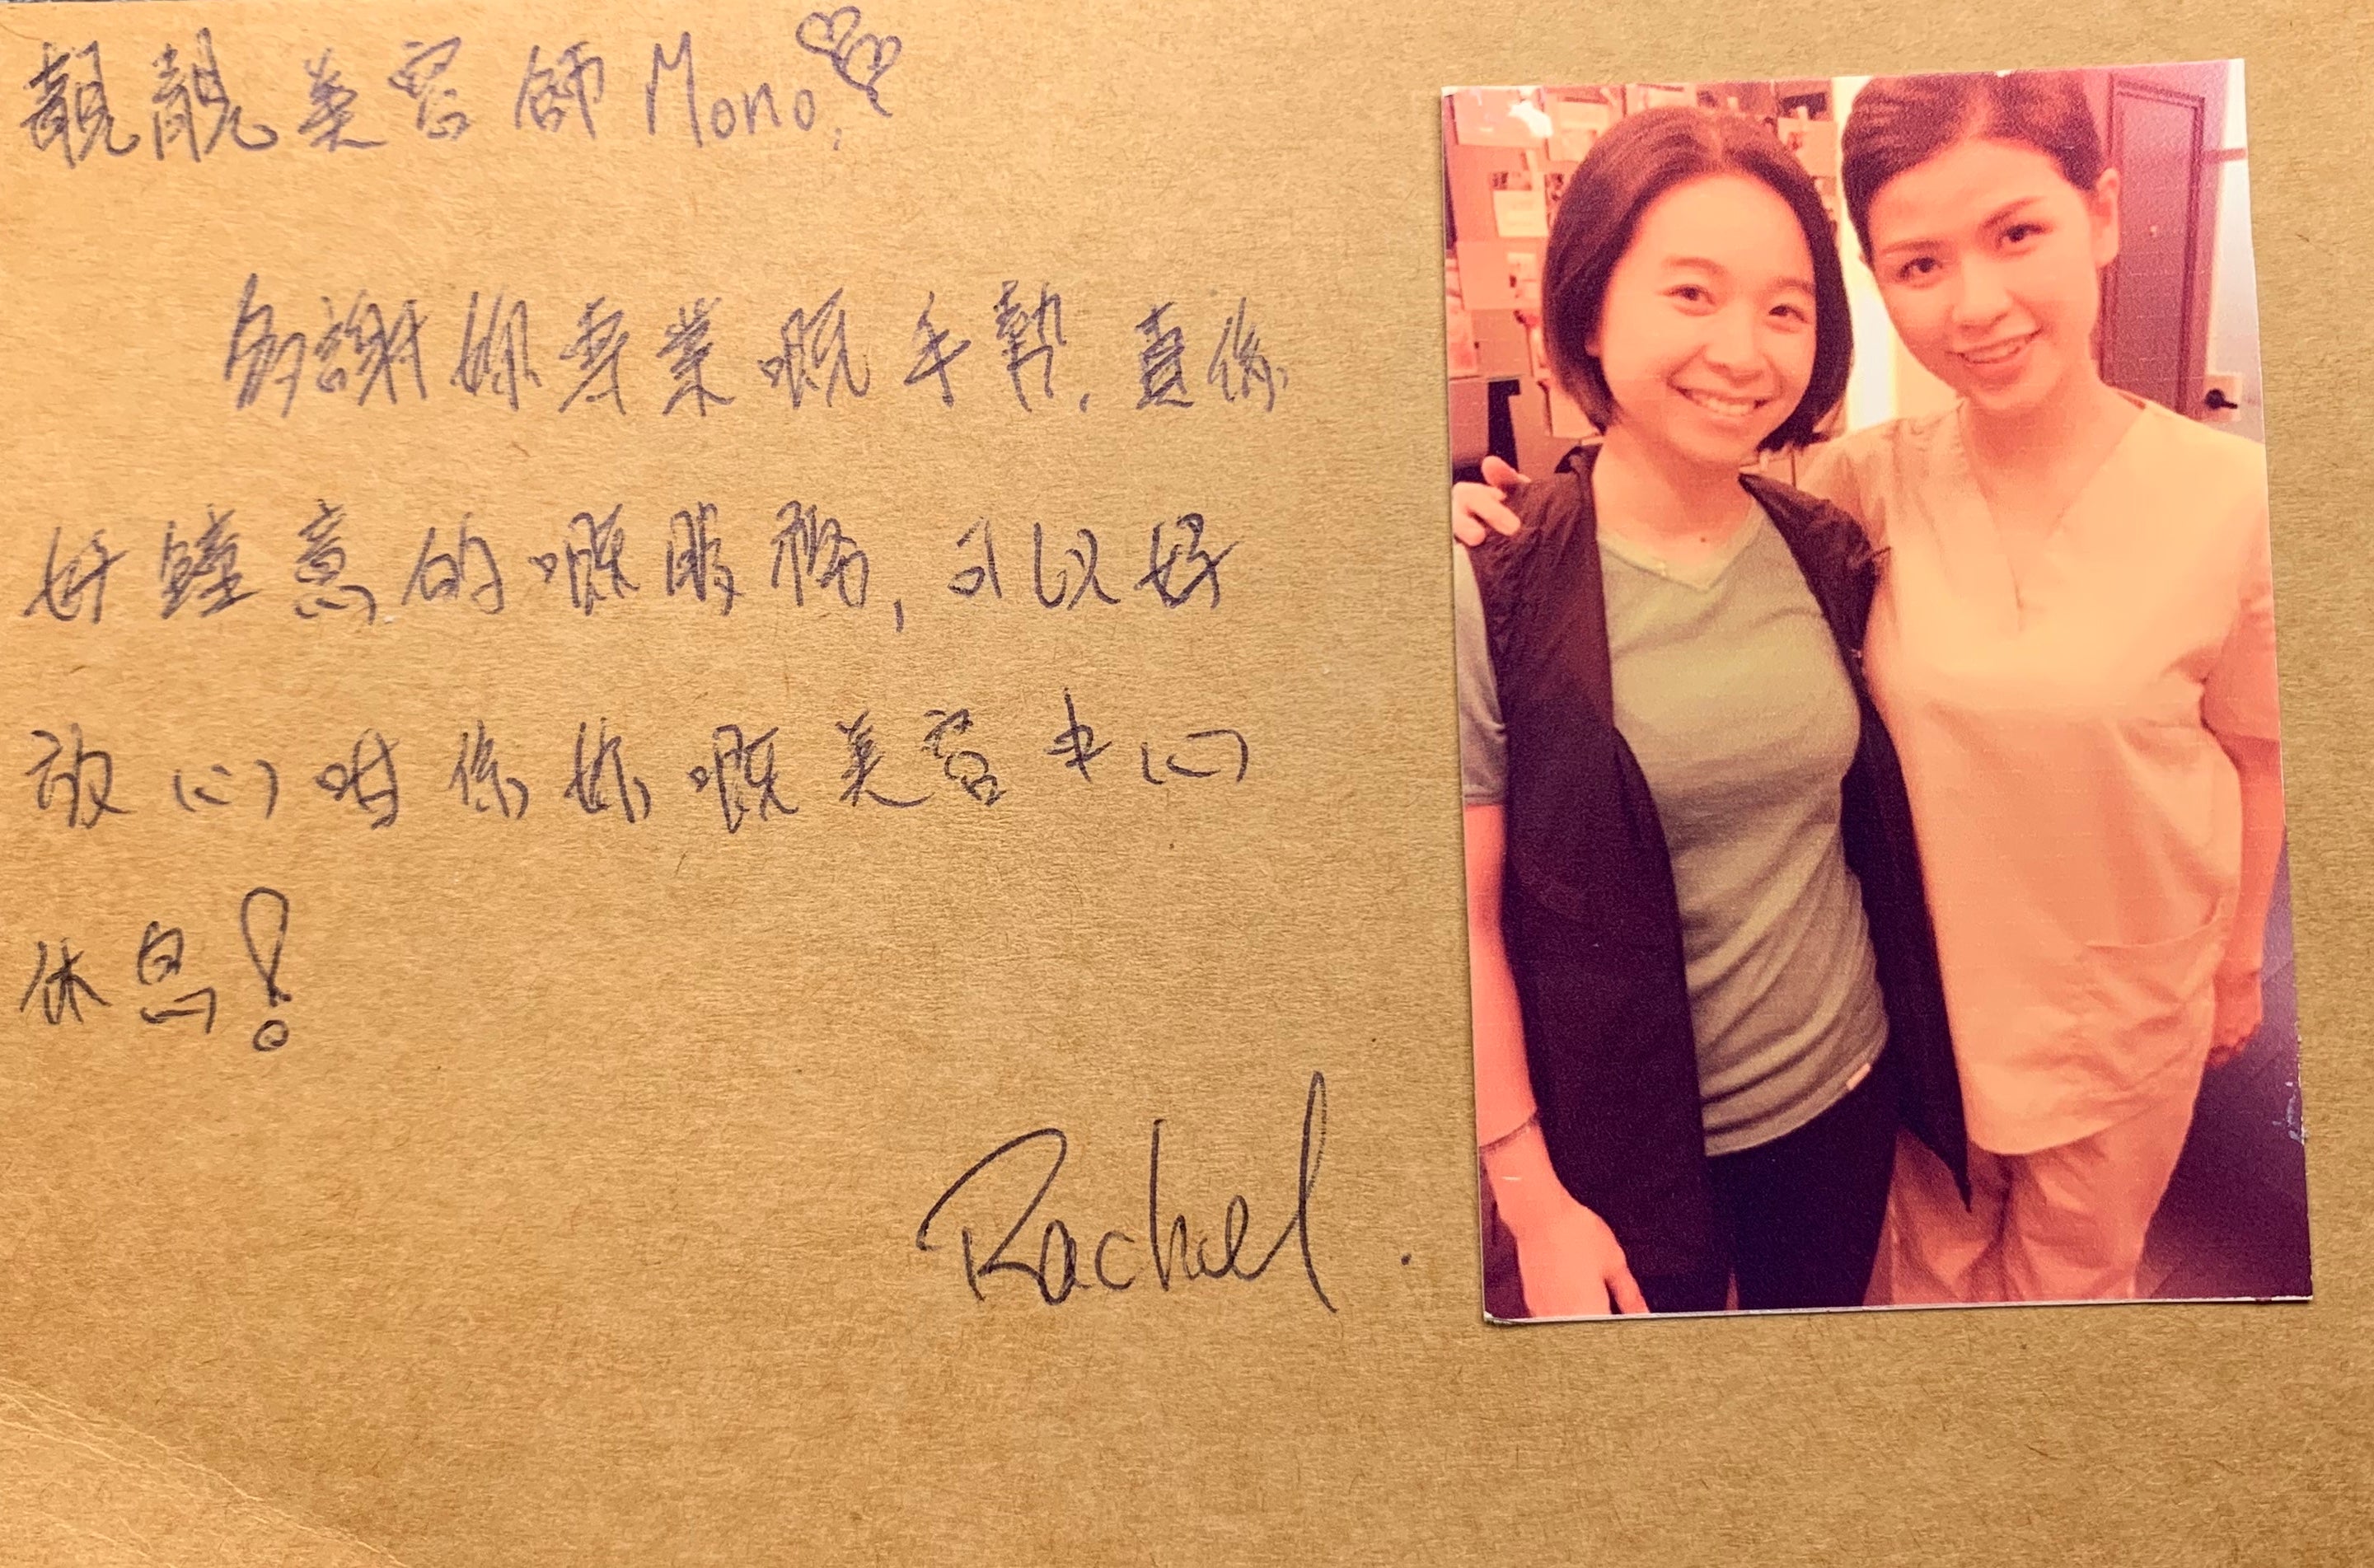 靚靚美容師Mono:
多謝妳專業嘅手勢,真係
好鐘意的嘅服務,可以好
放心咁係妳嘅美容中心
休息!
Rachel.